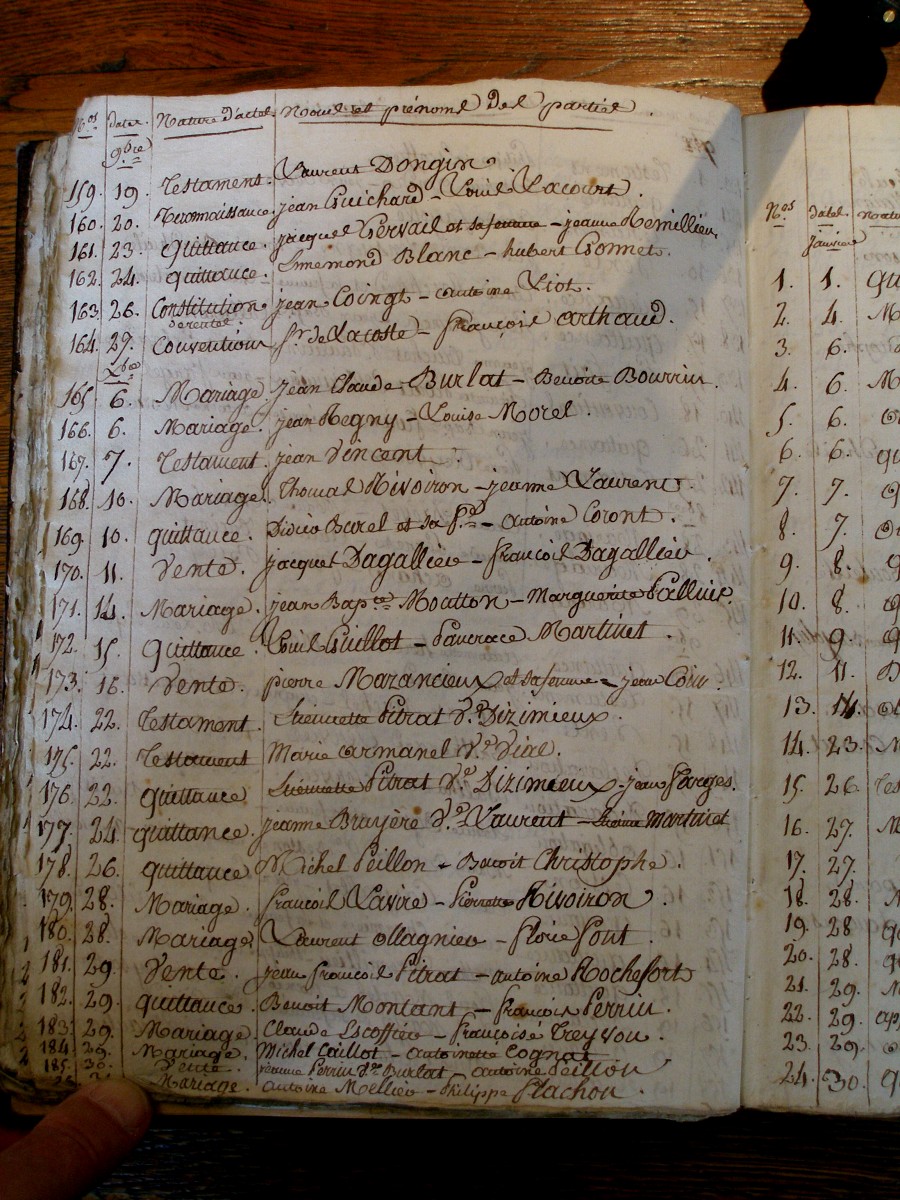 N.os date. Nature d'actes Noms et prénoms des parties
9.bre
159. 19. Testament. Laurent Dongin.
160. 20. Reconnaissance jean Guichard - Louis Lacourt.
161. 23. Quittance. jacques Gervais et sa femme - jeanne Remillieu.
162. 24. quittance. Annemond Blanc - hubert Gonnet.
163. 26. Constitution jean Coingt - antoine Viot.
de rente
164. 27. Convention Sr de Lacoste - françois Arthaud.
X.bre
165. 6. Mariage. jean Claude Burlat - Benoite Bourrin.
166. 6. Mariage. jean Regny - Louise Morel
167. 7. Testament. jean Vincent.
168. 10. Mariage. Thomas Rivoiron - jeanne Laurent.
169. 10. quittance. Didier Burel et sa f.e - antoine Coront.
170. 11. Vente. jacques Dagallier - françois Dagallier.
171. 14. Mariage. jean Bap.te Moutton - Marguerite
172. 15. Quittance. Louis Guillot - Pancrace Martinet.
173. 16. Vente. pierre Mazancieux et sa femme - jean
174. 22. Testament. Etiennette Pitrat V.e Dizimieux.
175. 22. Testament Marie armanel V.e Vial.
176. 22. quittance Etiennette Pitrat V.e Dizimieux - jean Farges.
177. 24. quittance. jeanne Bruyère V.e Laurent - Etienne Martinet
178. 26. quittance Michel Peillon - Benoit Christophe.
179. 28. Mariage. françois Lavire - Pierrette Rivoiron.
180. 28. Mariage. Laurent Ollagnier - florie Pont.
181. 29. Vente. jean françois Pitrat - antoine Rochefort
182. 29. quittance. Benoit Montant - françois Perrin.
183. 29. Mariage. Claude Escoffier - françoise Treyvou.
184. 29. Mariage. Michel Caillot - antoinette Cognat
185. 30. Vente. jeanne Perrin V.e Burlat - antoine Peillon
Mariage. antoine Mellier - Philippe Flachon.
N.os date. natu
janvier
1. 1. qu
2. 4. M
3. 6.
4. 6. M
5. 6.
6. 6. qu
7. 7. q
8. 7.
9. 8. q
10. 8. q
11. 9. q
12. 11. D
13. 14.
14. 23. M
15. 26. Tes
16. 27. M
17. 27.
18. 28. M
19. 28 q
20. 28. q
21. 29. M
22. 29. ap
23. 29.
24. 30. q